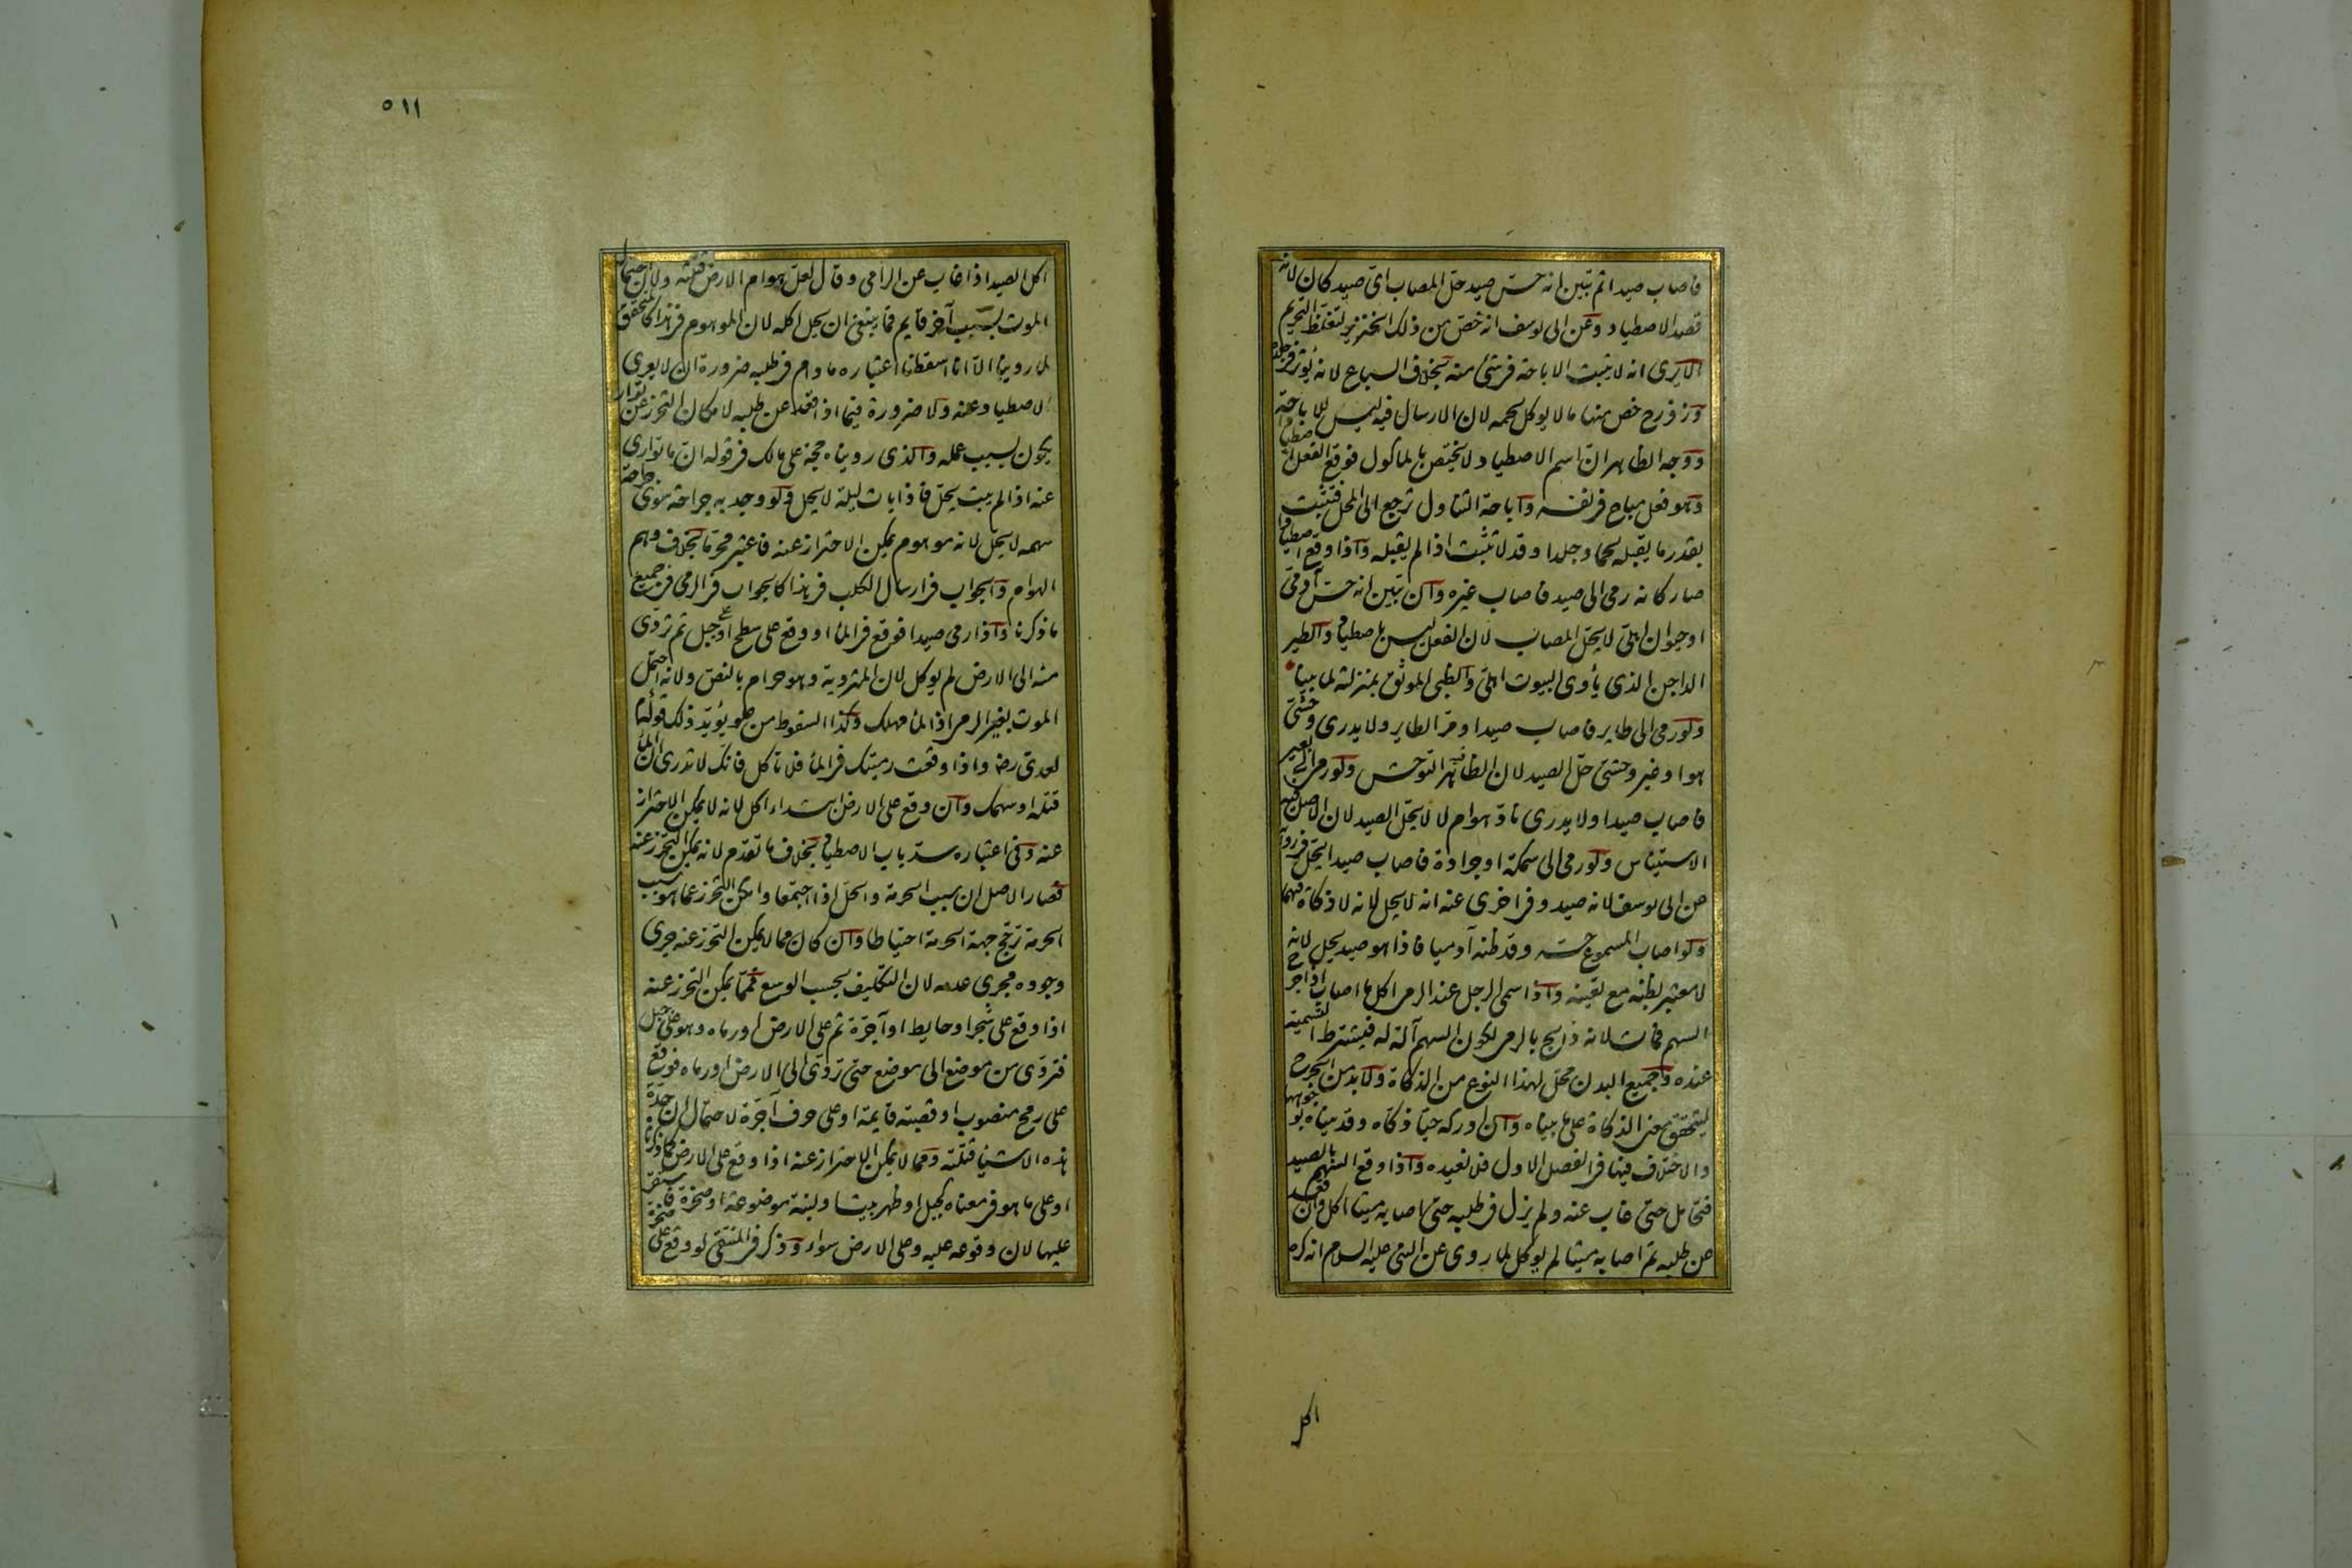 فاصاب صيدا ثم تبين انه حس صيد حل المصاب اى صيد كان لانه
قصد الاصطياد وعن ابى يوسف انه خص من ذلك الخنزير لتغلظ التحريم
الا يرى انه لا يثبت الاباحة فى شئ منه بخلاف السباع لانه يؤثر فى جلده
وزفر رح خص منها ما لا يوكل لحمه لان الارسال فيه ليس للاباحة
ووجه الظاهر ان اسم الاصطياد لا يختص بالماكول فوقع الفعل اصطيادا
وهو فعل مباح فى نفسه واباحة التناول ترجع الى المحل فتثبت
بقدر ما يقبله لحما وجلدا وقد لا تثبت اذا لم يقبله واذا وقع اصطيادا
صار كانه رمى الى صيد فاصاب غيره وان تبين انه حس آدمى
او حيوان اهلى لا يحل المصاب لان الفعل ليس باصطياد والطير
الداجن الذى يأوى البيوت اهلى والظبى الموثق بمنزلته لما بينا
ولو رمى الى طاير فاصاب صيدا ومر الطاير ولا يدرى وحشى
هو او غير وحشى حل الصيد لان الظاهر فيه التوحش ولو رمى الى بعير
فاصاب صيدا ولا يدرى ناد هو ام لا لا يحل الصيد لان الاصل فيه
الاستيناس ولو رمى الى سمكة او جرادة فاصاب صيدا يحل فى رواية
عن ابى يوسف لانه صيد وفى اخرى عنه انه لا يحل لانه لا ذكاة فيهما
ولو اصاب المسموع حسه وقد ظنه آدميا فاذا هو صيد يحل لانه
لا معتبر بظنه مع تعينه واذا سمى الرجل عند الرمى اكل ما اصاب اذا جرح
السهم فمات لانه ذابح بالرمى لكون السهم آلة له فيشترط التسمية
عنده وجميع البدن محل لهذا النوع من الذكاة ولا بد من الجرح
ليتحقق معنى الذكاة على ما بيناه وان ادركه حيا ذكاه وقد بيناه بوجوهها
والاختلاف فيها فى الفصل الاول فلا نعيده واذا وقع السهم بالصيد
فتحامل حتى غاب عنه ولم يزل فى طلبه حتى اصابه ميتا اكل وان قعد
عن طلبه ثم اصابه ميتا لم يوكل لما روى عن النبى عليه السلام انه كره
اكل
٥١١
اكل الصيد اذا غاب عن الرامى وقال لعل هوام الارض قتلته ولان احتمال
الموت بسبب آخر قايم فما ينبغى ان يحل اكله لان الموهوم فى هذا كالمتحقق
لما روينا الا انا اسقطنا اعتباره ما دام فى طلبه ضرورة ان لا يعرى
الاصطياد عنه ولا ضرورة فيما اذا قعد عن طلبه لامكان التحرز عن توار
يكون بسبب عمله والذى رويناه حجة على مالك فى قوله ان ما توارى
عنه اذا لم يبت يحل فاذا بات ليلة لا يحل ولو وجد به جراحة سوى جراحة
سهمه لا يحل لانه موهوم يمكن الاحتراز عنه فاعتبر محرما بخلاف وهم
الهوام والجواب فى ارسال الكلب فى هذا كالجواب فى الرمى فى جميع
ما ذكرنا واذا رمى صيدا فوقع فى الماء او وقع على سطح او جبل ثم تردى
منه الى الارض لم يوكل لان المتردية وهو حرام بالنص ولانه احتمل
الموت بغير الرمى اذ الماء مهلك وكذا السقوط من علو يؤيد ذلك قوله
لعدى رض واذا وقعت رميتك فى الماء فلا تاكل فانك لا تدرى ان الماء
قتله او سهمك وان وقع على الارض ابتداء اكل لانه لا يمكن الاحتراز
عنه وفى اعتباره سد باب الاصطياد بخلاف ما تقدم لانه يمكن التحرز عنه
فصار الاصل ان سبب الحرمة والحل اذا اجتمعا وامكن التحرز عما هو سبب
الحرمة ترجح جهة الحرمة احتياطا وان كان مما لا يمكن التحرز عنه جرى
وجوده مجرى عدمه لان التكليف بحسب الوسع فمما يمكن التحرز عنه
اذا وقع على شجر او حايط او آجرة ثم على الارض او رماه وهو على جبل
فتردى من موضع الى موضع حتى تردى الى الارض او رماه فوقع
على رمح منصوب او قصبة قايمة او على حرف آجرة لاحتمال ان حد
هذه الاشياء قتلته ومما لا يمكن الاحتراز عنه اذا وقع على الارض كما ذكرنا
او على ما هو فى معناه كجبل او ظهر بيت او لبنة موضوعة او صخرة فاستقر
عليها لان وقوعه عليه وعلى الارض سواء وذكر فى المنتقى لو وقع على صخرة